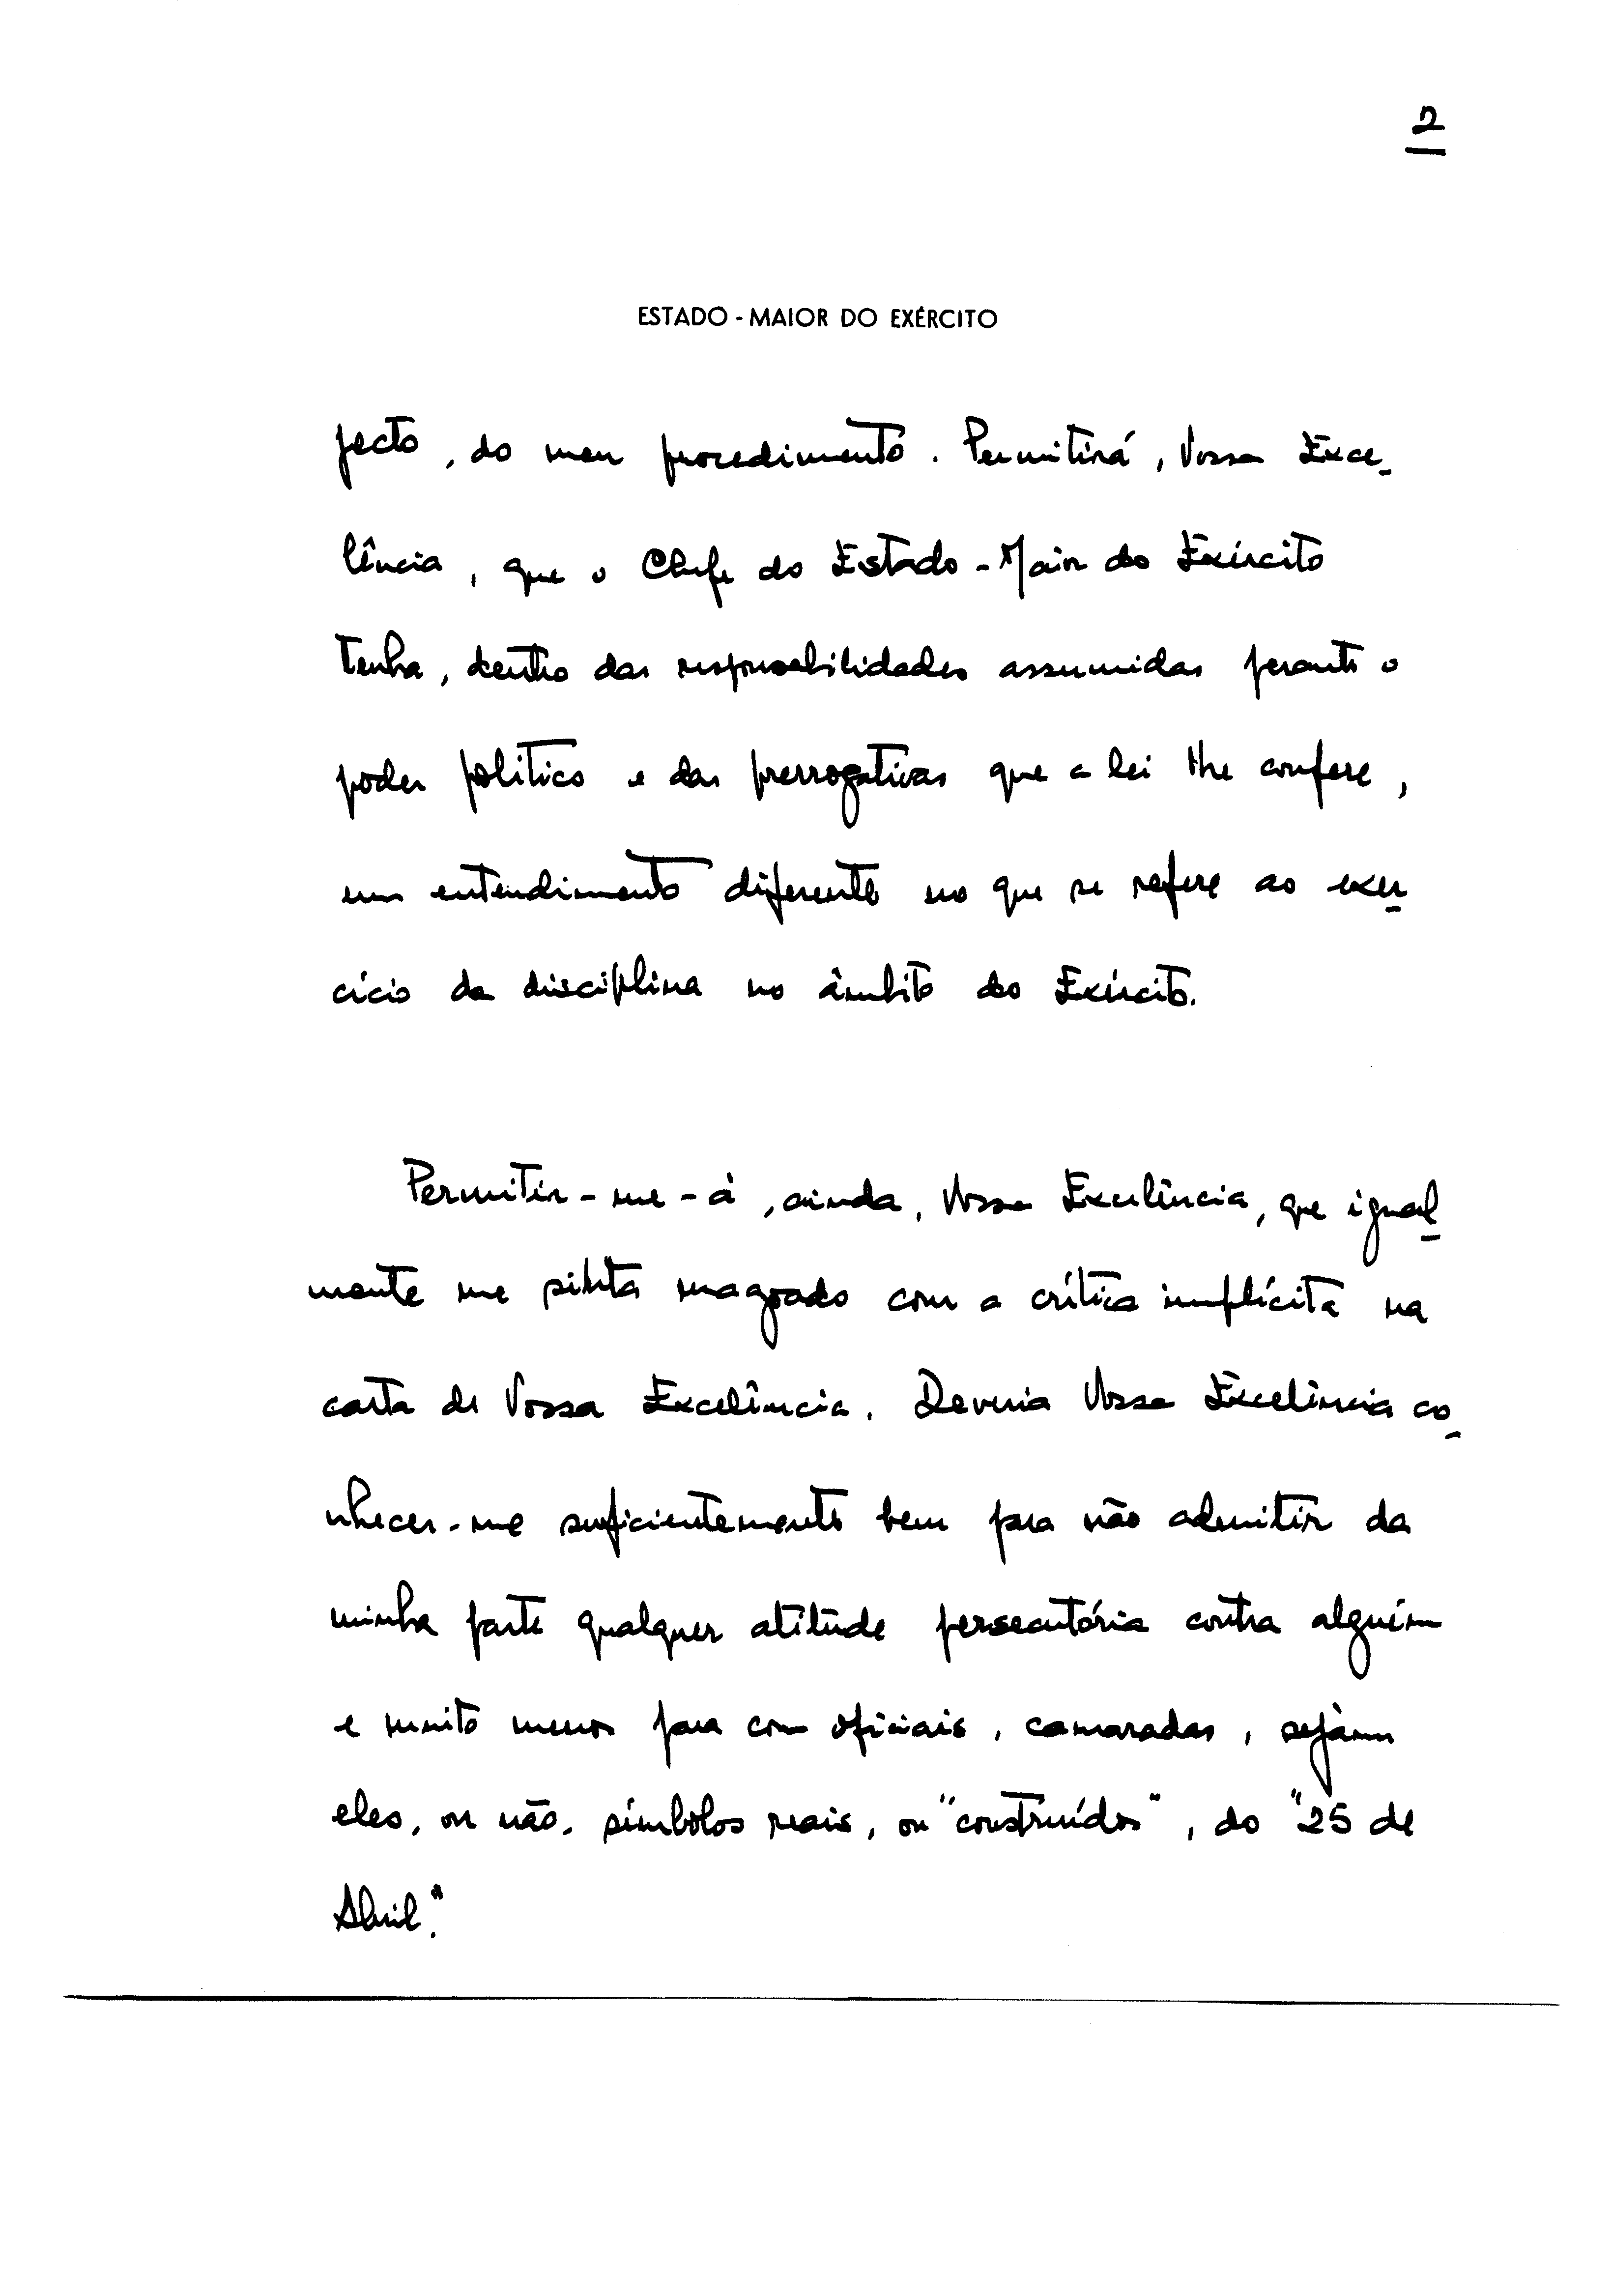 2
ESTADO - MAIOR DO EXÉRCITO
fecto, do meu procedimento. Permitirá, Vossa Exce-
lência, que o Chefe do Estado-Maior do Exército
tenha, dentro das responsabilidades assumidas perante o
poder político e das prerrogativas que a lei lhe confere,
um entendimento diferente no que se refere ao exer-
cício da disciplina no âmbito do Exército.
Permitir-me-á, ainda, Vossa Excelência, que igual-
mente me sinta magoado com a crítica implícita na
carta de Vossa Excelência. Deveria Vossa Excelência co-
nhecer-me suficientemente bem para não admitir da
minha parte qualquer atitude persecutória contra alguém
e muito menos para com oficiais, camaradas, sejam
eles, ou não, símbolos reais, ou "construídos", do "25 de
Abril".